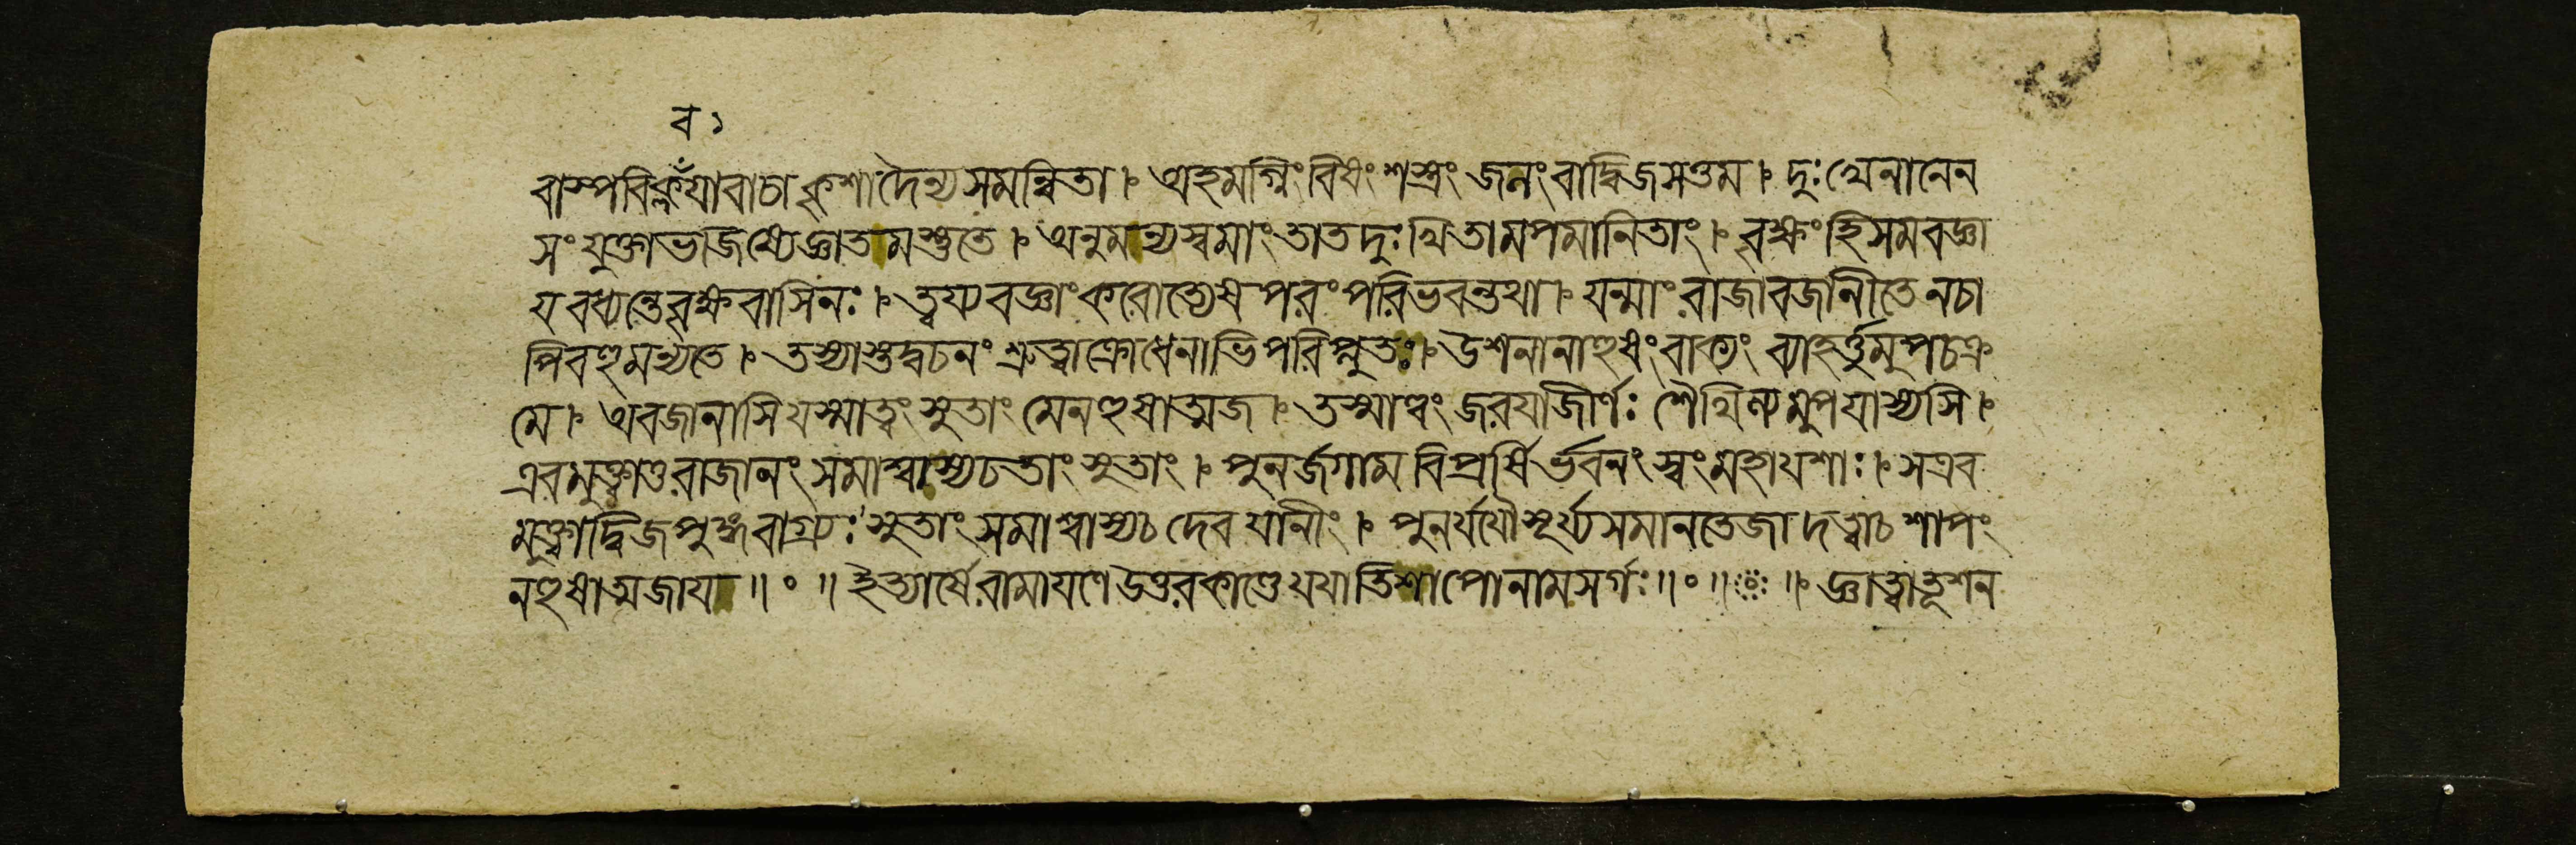 ব ১
বাস্পবিক্লঁযাবাচাকৃশাদৈন্যসমন্বিতা। অহমগ্নিংবিষংশস্ত্রং জলংবাদ্বিজসত্তম। দুঃখেনানেন
সংযুক্তাভজিষ্যেজ্ঞাতমস্তুতে। অনুমন্যস্বমাংতাতদুঃখিতামপমানিতাং। বৃক্ষংহিসমবজ্ঞা
যবধ্যন্তেবৃক্ষবাসিনঃ। ত্বয্যবজ্ঞাংকরোত্যেষপরংপরিভবন্তথা। যন্মাংরাজাবজানীতেনচা
পিবহুমন্যতে। তস্যাস্তদ্বচনংশ্রুত্বাক্রোধেনাভিপরিপ্লুতঃ। উশনানাহুষংবাক্যং ব্যাহর্ত্তুমুপচক্র
মে। অবজানাসিযস্মাত্বংসুতাংমেনহুষাত্মজ। তস্মাত্ত্বংজরযাজীর্ণঃ শৈথিল্যমুপযাস্যসি।
এবমুক্ত্বাতুরাজানংসমাশ্বাস্যচতাংসুতাং। পুনর্জগামবিপ্রর্ষির্ভবনংস্বংমহাযশাঃ। সএব
মুক্ত্বাদ্বিজপুঙ্গবাগ্র্যঃসুতাংসমাশ্বাস্যচদেবযানীং। পুনর্যযৌসূর্য্যসমানতেজাদত্বাচশাপং
নহুষাত্মজায॥॰॥ইত্যার্ষেরামাযণেউত্তরকাণ্ডেযযাতিশাপোনামসর্গঃ॥॰॥ ॥ জ্ঞাত্বাতূশন